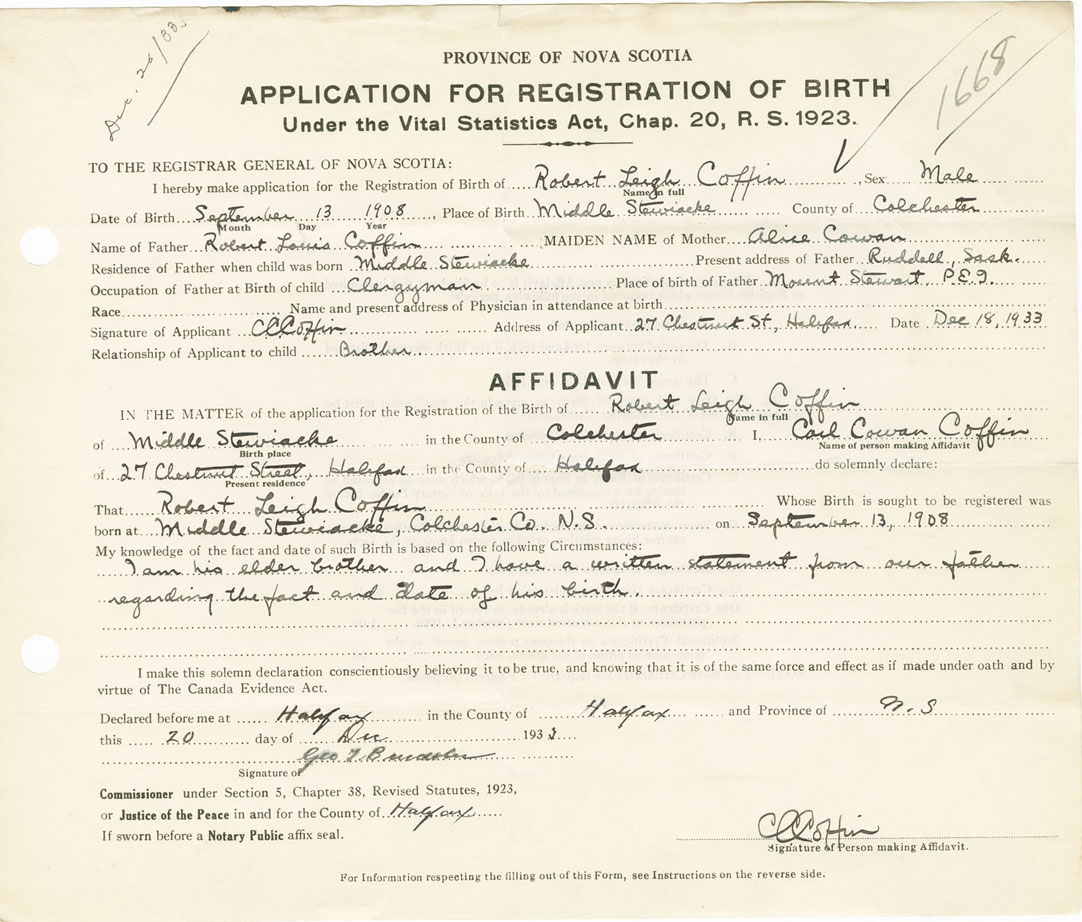 Dec. 20/33
1668
PROVINCE OF NOVA SCOTIA
APPLICATION FOR REGISTRATION OF BIRTH
Under the Vital Statistics Act, Chap. 20, R. S. 1923.
TO THE REGISTRAR GENERAL OF NOVA SCOTIA:
I hereby make application for the Registration of Birth of Robert Leigh Coffin, Sex Male
Name in full
Date of Birth September 13 1908, Place of Birth Middle Stewiacke County of Colchester
Month Day Year
Name of Father Robert Louis Coffin MAIDEN NAME of Mother Alice Cowan
Residence of Father when child was born Middle Stewiacke Present address of Father Ruddell, Sask.
Occupation of Father at Birth of child Clergyman Place of birth of Father Mount Stewart, P.E.I.
Race Name and present address of Physician in attendance at birth
Signature of Applicant CCCoffin Address of Applicant 27 Chestnut St., Halifax Date Dec 18, 1933
Relationship of Applicant to child Brother
AFFIDAVIT
IN THE MATTER of the application for the Registration of the Birth of Robert Leigh Coffin
Name in full
of Middle Stewiacke in the County of Colchester I, Carl Cowan Coffin
Birth place Name of person making Affidavit
of 27 Chestnut Street, Halifax in the County of Halifax do solemnly declare:
Present residence
That Robert Leigh Coffin Whose Birth is sought to be registered was
born at Middle Stewiacke, Colchester Co. N.S. on September 13, 1908
My knowledge of the fact and date of such Birth is based on the following Circumstances:
I am his elder brother and I have a written statement from our father
regarding the fact and date of his birth.
I make this solemn declaration conscientiously believing it to be true, and knowing that it is of the same force and effect as if made under oath and by
virtue of The Canada Evidence Act.
Declared before me at Halifax in the County of Halifax and Province of N.S
this 20 day of Dec 1933
Geo T
Signature of
Commissioner under Section 5, Chapter 38, Revised Statutes, 1923,
or Justice of the Peace in and for the County of Halifax
If sworn before a Notary Public affix seal.
CCCoffin
Signature of Person making Affidavit.
For Information respecting the filling out of this Form, see Instructions on the reverse side.